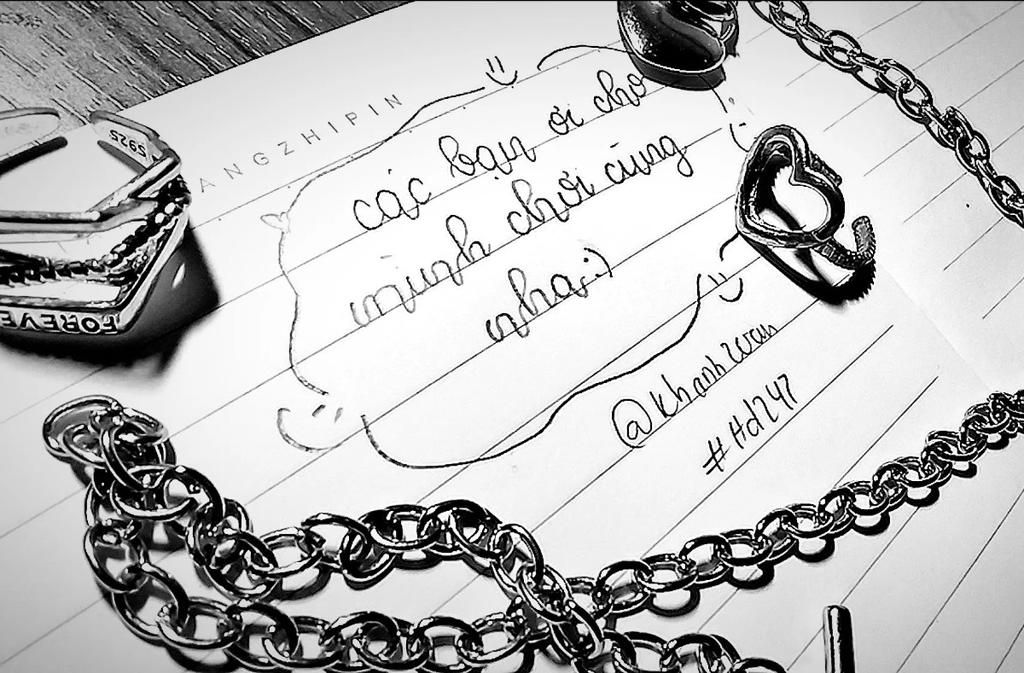 ANGZHIPIN
S925
FOREVE
các bạn ơi cho
mình chơi cùng
nha:)
@Khanhwan
#Hd247